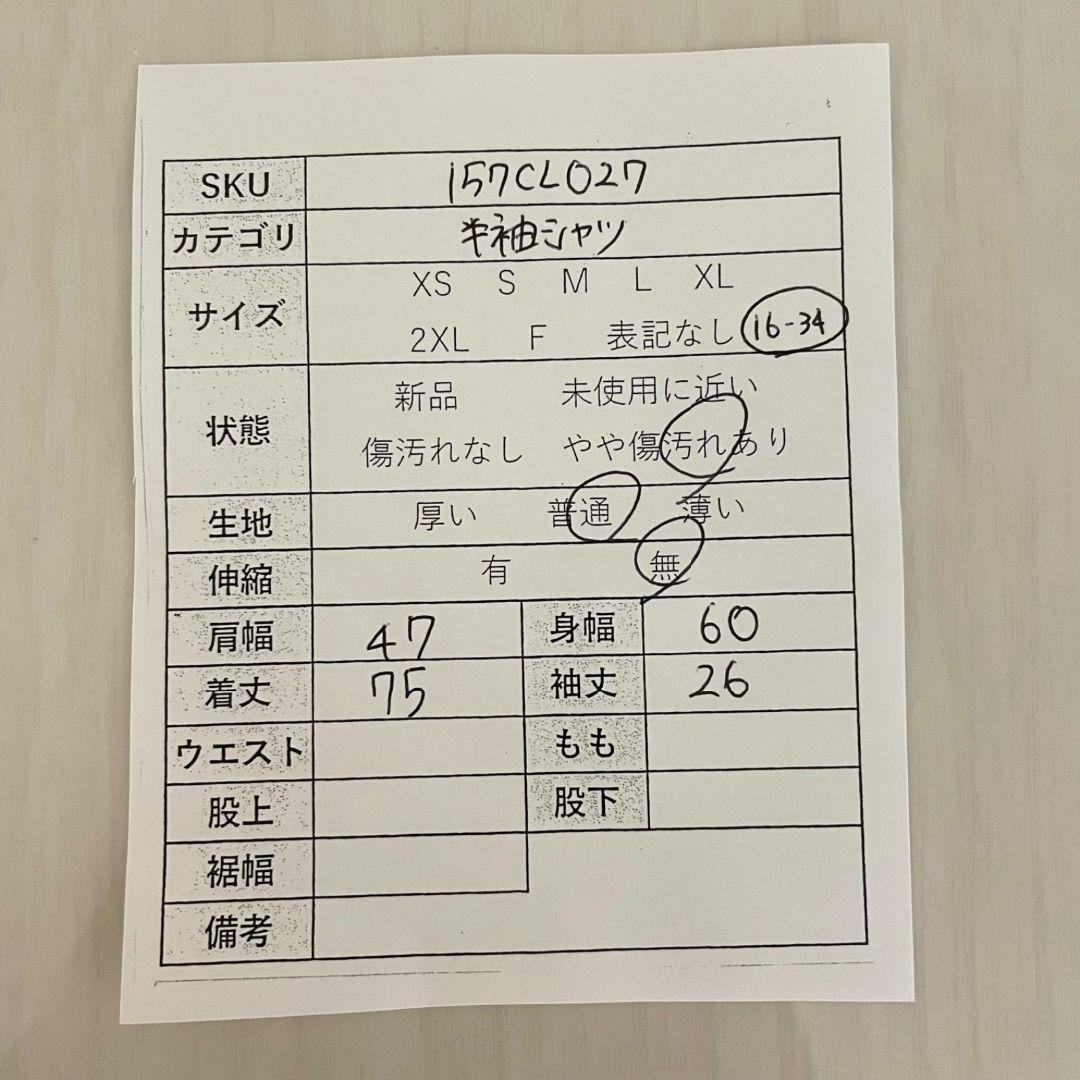 SKU 157CL027
カテゴリ 半袖シャツ
サイズ XS S M L XL
2XL F 表記なし 16-34
状態 新品 未使用に近い
傷汚れなし やや傷汚れあり
生地 厚い 普通 薄い
伸縮 有 無
肩幅 47 身幅 60
着丈 75 袖丈 26
ウエスト もも
股上 股下
裾幅
備考